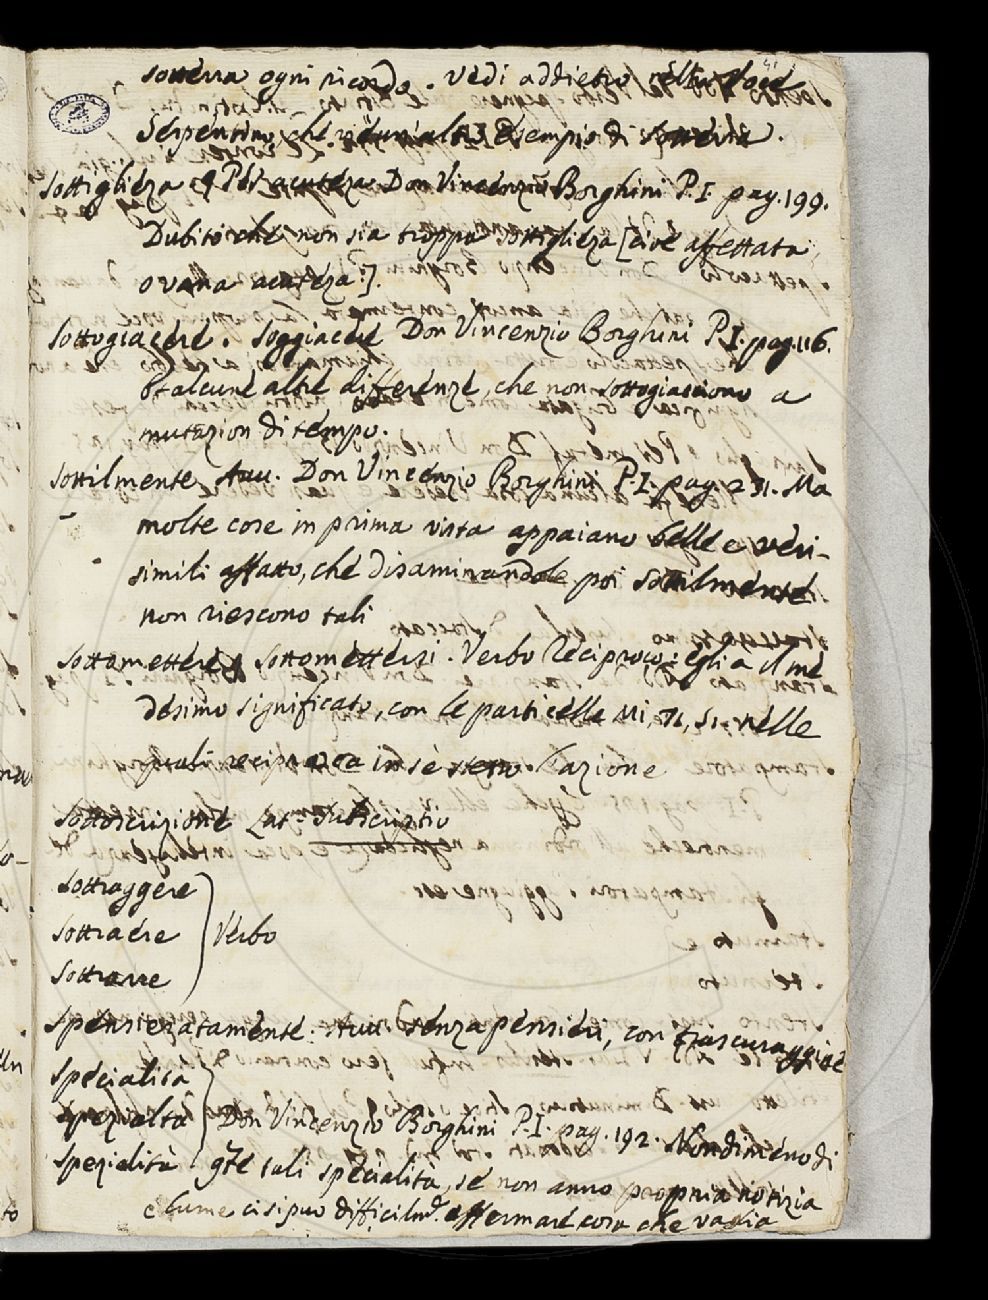 41
sotterra ogni ricordo. Vedi addietro nella Voce
Serpentino, che vedrai altro esempio di sotterra.
Sottigliezza q Per acutezza Don Vincenzio Borghini P.I. pag. 199.
Dubito che non sia troppa sottigliezza [cioè affettata
o vana acutezza].
Sottogiacere. Soggiacere Don Vincenzio Borghini P.I. pag. 116.
et alcune altre differenze, che non sottogiacciono a
mutazion di tempo.
Sottilmente Avv. Don Vincenzio Borghini P.I. pag. 231. Ma
molte cose in prima vista appaiano belle e veri-
simili affatto, che disaminandole poi sottilmente
non riescono tali
Sottomettere, sottomettersi. Verbo reciproco: egli a il me
desimo significato, con le particelle Mi, Ti, Si. nelle
quali reciproca in sè stesso l'azione
Sottoscrizione Lat. Subscriptio
Sottraggere
Sottraere Verbo
Sottrarre
Spensieratamente. Avv. senza pensieri, con trascuraggine
Specialità
Spezialtà Don Vincenzio Borghini P.I. pag. 192. Nondimeno di
Spezialità qste tali specialità, se non anno propria notizia
e lume ci si può difficilmte. affermare cosa che vaglia